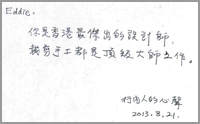 Eddie,
你是香港最傑出的設計師,
裁剪手工都是頂級大師之作。
行內人的心聲
2013.8.21.